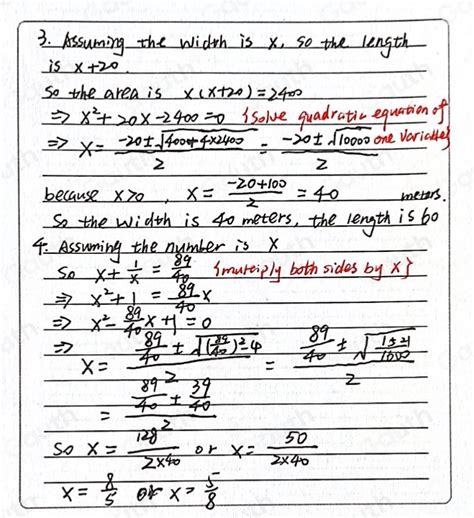 3. Assuming the width is x, so the length
is x+20.
So the area is x(x+20)=2400
⇒ x²+20x-2400=0 {solve quadratic equation of
⇒ x= (-20±√(400+4×2400))/2 = (-20±√10000)/2 one variable}
because x>0, x= (-20+100)/2 = 40 meters.
So the width is 40 meters, the length is 60
4. Assuming the number is x
So x+1/x = 89/40 {muteiply both sides by x}
⇒ x²+1 = 89/40 x
⇒ x²-89/40 x+1=0
⇒ x= (89/40 ± √((89/40)²-4))/2 = (89/40 ± √(1521/1600))/2
= (89/40 ± 39/40)/2
So x= 128/(2×40) or x= 50/(2×40)
x= 8/5 or x= 5/8